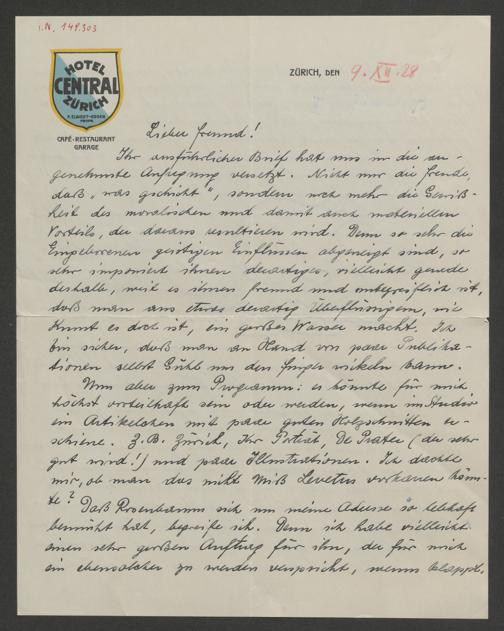 I.N. 149.303
HOTEL
CENTRAL
ZÜRICH
CAFÉ-RESTAURANT
GARAGE
ZÜRICH, DEN 9. XII. 28
Lieber Freund!
Ihr ausführlicher Brief hat uns in die an-
genehmste Aufregung versetzt. Nicht nur die Freude,
daß „was gschicht", sondern noch mehr die Gewiß-
heit des moralischen und damit auch materiellen
Vorteils, der daraus resultieren wird. Denn so sehr die
Eingeborenen geistigen Einflüssen abgeneigt sind, so
sehr imponiert ihnen derartiges, vielleicht gerade
deshalb, weil es ihnen fremd und unbegreiflich ist,
daß man aus etwas derartig Überflüssigem, wie
Kunst es doch ist, ein großes Wasser macht. Ich
bin sicher, daß man an Hand von paar Publika-
tionen selbst Gühl um den Finger wickeln kann.
Nun aber zum Programm: es könnte für mich
höchst vorteilhaft sein oder werden, wenn im Studio
ein Artikelchen mit paar guten Holzschnitten er-
schiene. Z.B. Zürich, Ihr Porträt, De Prater (der sehr
gut wird!) und paar Illustrationen. Ich dachte
mir, ob man das nicht Miß Levetus vorkauen könn-
te? Daß Rosenbaum sich um meine Adresse so lebhaft
bemüht hat, begreife ich. Denn ich habe vielleicht
einen sehr großen Auftrag für ihn, der für mich
ein ebensolcher zu werden verspricht, wenns klappt.